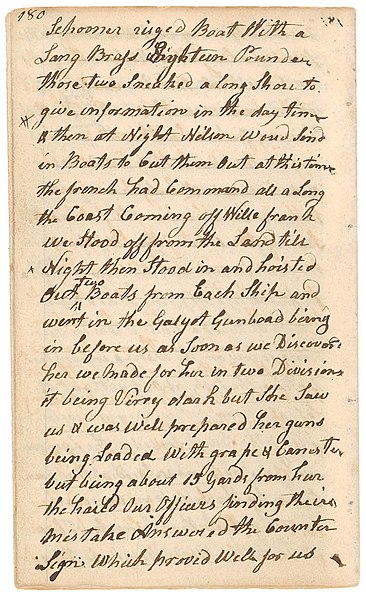 180
Schooner riged Boat With a
Lang Brass Eighteen Pounder
those two Sneaked a long Shore to
give information in the day time
& then at Night Nelson Woud Send
in Boats to Cut them Out at this time
the french had Command all a Long
the Coast Coming off Ville frank
we Stood off from the Land till
Night then Stood in and hoisted
Out two Boats from Each Ship and
went in the Galyot Gunboad being
in before us as Soon as we Discover
her we made for her in two Divisions
it being Verrey dark but She Saw
us & was Well prepared her guns
being Loaded With grape & Canester
but being about 15 Yards from hur
the hailed Our Officers finding there
mistake Answered the Counter
Sign Which proved Well for us